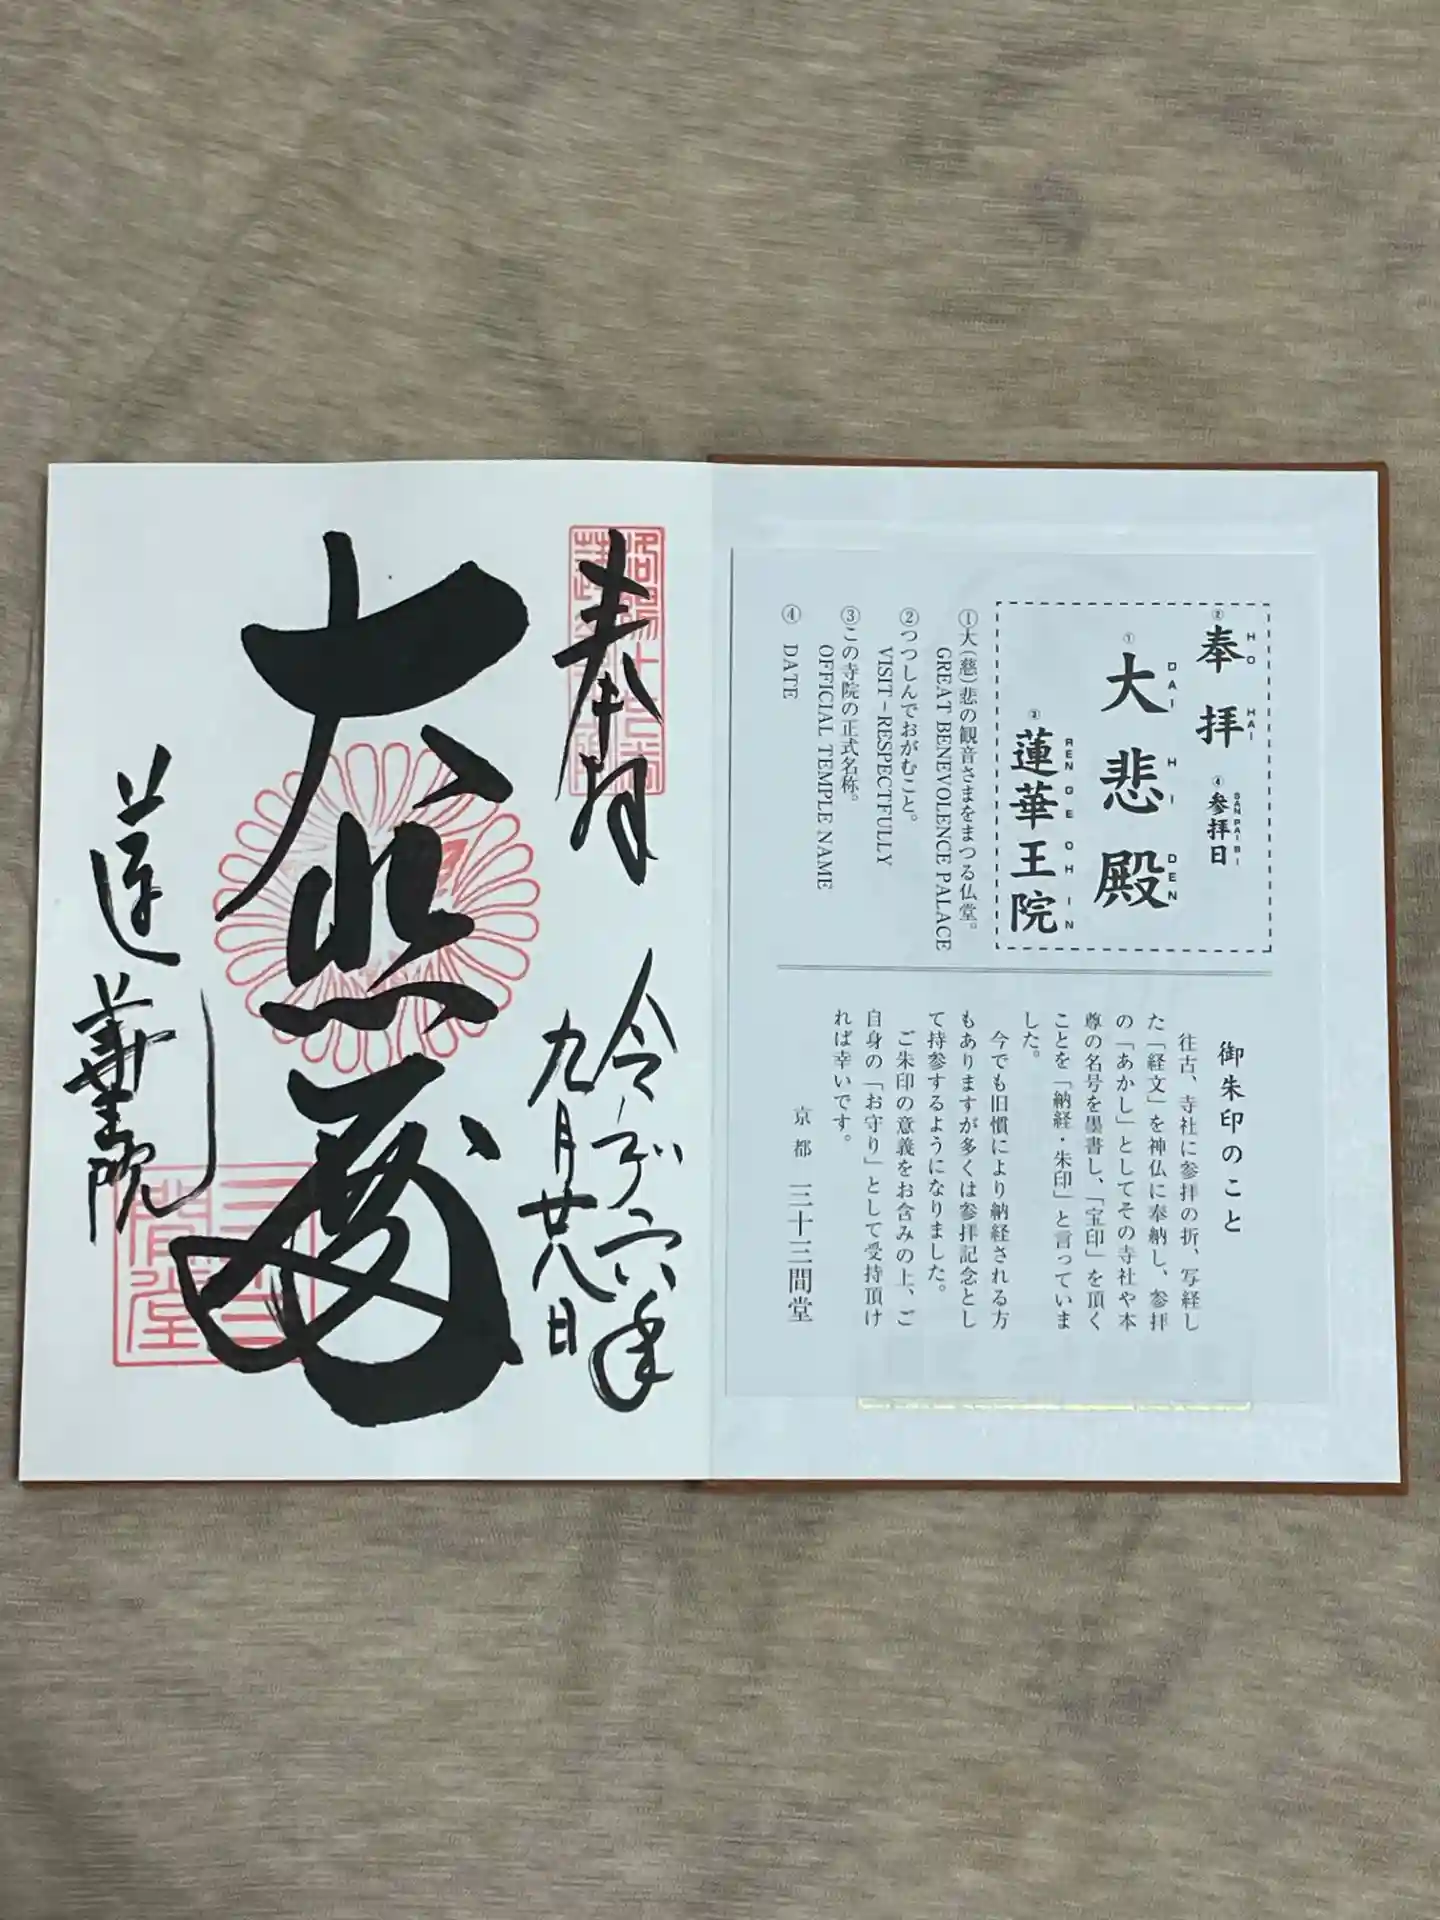 ② 奉拝 ④ 参拝日
HO HAI SAN PAI BI
① 大悲殿
DAI HI DEN
③ 蓮華王院
REN GE OH IN
①大(慈)悲の観音さまをまつる仏堂。
GREAT BENEVOLENCE PALACE
②つつしんでおがむこと。
VISIT-RESPECTFULLY
③この寺院の正式名称。
OFFICIAL TEMPLE NAME
④ DATE
御朱印のこと
往古、寺社に参拝の折、写経し
た「経文」を神仏に奉納し、参拝
の「あかし」としてその寺社や本
尊の名号を墨書し、「宝印」を頂く
ことを「納経・朱印」と言っていま
した。
今でも旧慣により納経される方
もありますが多くは参拝記念とし
て持参するようになりました。
ご朱印の意義をお含みの上、ご
自身の「お守り」として受持頂け
れば幸いです。
京都 三十三間堂
奉拝
令和六年
九月廿八日
大悲殿
蓮華王院
三十三間堂